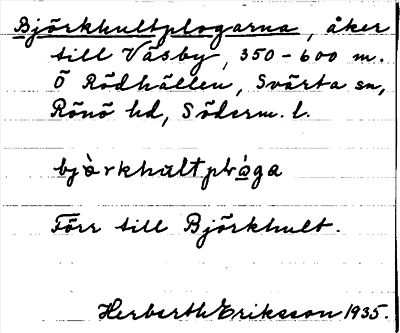 Björkhultplogarna, åker
till Väsby, 350-600 m.
Ö Rödhällen, Svärta sn,
Rönö hd, Söderm. l.
Förr till Björkhult.
Herberth Eriksson 1935.